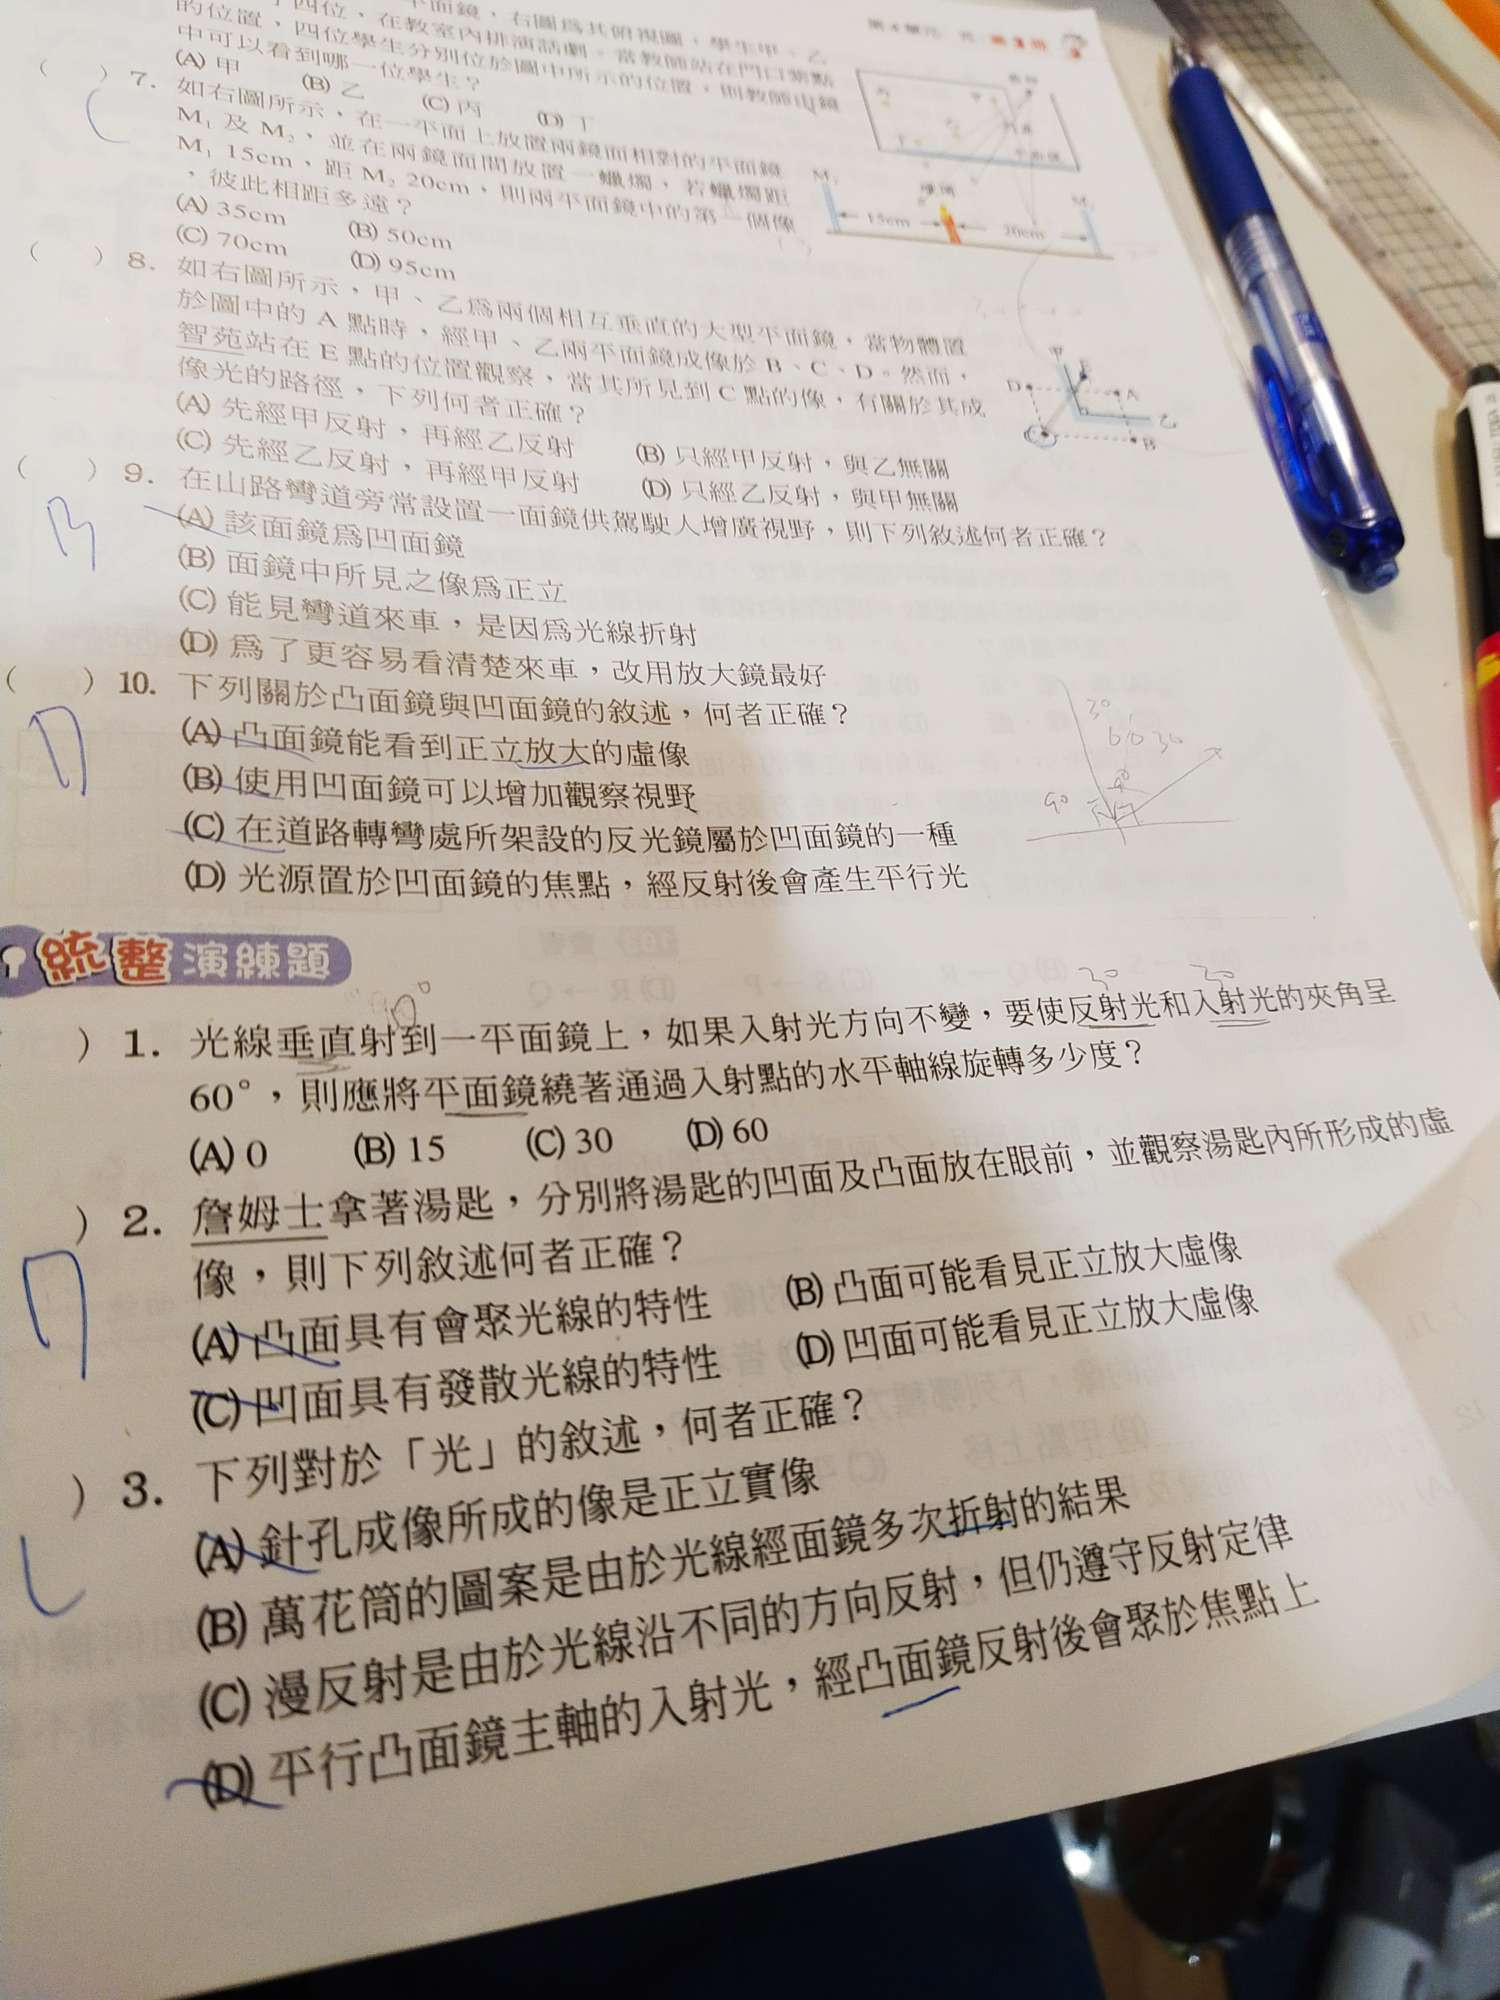 四位,在教室內排演話劇。當教師站在門口黑點
的位置,四位學生分別位於圖中所示的位置,則教師由鏡
中可以看到哪一位學生?
(A)甲 (B)乙 (C)丙 (D)丁
( ) 7. 如右圖所示,在一平面上放置兩鏡面相對的平面鏡
M₁ 及 M₂,並在兩鏡面間放置一蠟燭,若蠟燭距
M₁ 15cm、距 M₂ 20cm,則兩平面鏡中的第一個像
,彼此相距多遠?
(A) 35cm (B) 50cm
(C) 70cm (D) 95cm
15cm 20cm
( ) 8. 如右圖所示,甲、乙為兩個相互垂直的大型平面鏡,當物體置
於圖中的 A 點時,經甲、乙兩平面鏡成像於 B、C、D。然而,
智苑站在 E 點的位置觀察,當其所見到 C 點的像,有關於其成
像光的路徑,下列何者正確?
(A) 先經甲反射,再經乙反射 (B) 只經甲反射,與乙無關
(C) 先經乙反射,再經甲反射 (D) 只經乙反射,與甲無關
甲 E D A 乙 B
( ) 9. 在山路彎道旁常設置一面鏡供駕駛人增廣視野,則下列敘述何者正確?
B
(A) 該面鏡為凹面鏡
(B) 面鏡中所見之像為正立
(C) 能見彎道來車,是因為光線折射
(D) 為了更容易看清楚來車,改用放大鏡最好
( ) 10. 下列關於凸面鏡與凹面鏡的敘述,何者正確?
D
(A) 凸面鏡能看到正立放大的虛像
(B) 使用凹面鏡可以增加觀察視野
(C) 在道路轉彎處所架設的反光鏡屬於凹面鏡的一種
(D) 光源置於凹面鏡的焦點,經反射後會產生平行光
30
60 30
90
統整演練題
90°
30 30
) 1. 光線垂直射到一平面鏡上,如果入射光方向不變,要使反射光和入射光的夾角呈
60°,則應將平面鏡繞著通過入射點的水平軸線旋轉多少度?
(A) 0 (B) 15 (C) 30 (D) 60
) 2. 詹姆士拿著湯匙,分別將湯匙的凹面及凸面放在眼前,並觀察湯匙內所形成的虛
像,則下列敘述何者正確?
D
(A) 凸面具有會聚光線的特性 (B) 凸面可能看見正立放大虛像
(C) 凹面具有發散光線的特性 (D) 凹面可能看見正立放大虛像
) 3. 下列對於「光」的敘述,何者正確?
C
(A) 針孔成像所成的像是正立實像
(B) 萬花筒的圖案是由於光線經面鏡多次折射的結果
(C) 漫反射是由於光線沿不同的方向反射,但仍遵守反射定律
(D) 平行凸面鏡主軸的入射光,經凸面鏡反射後會聚於焦點上